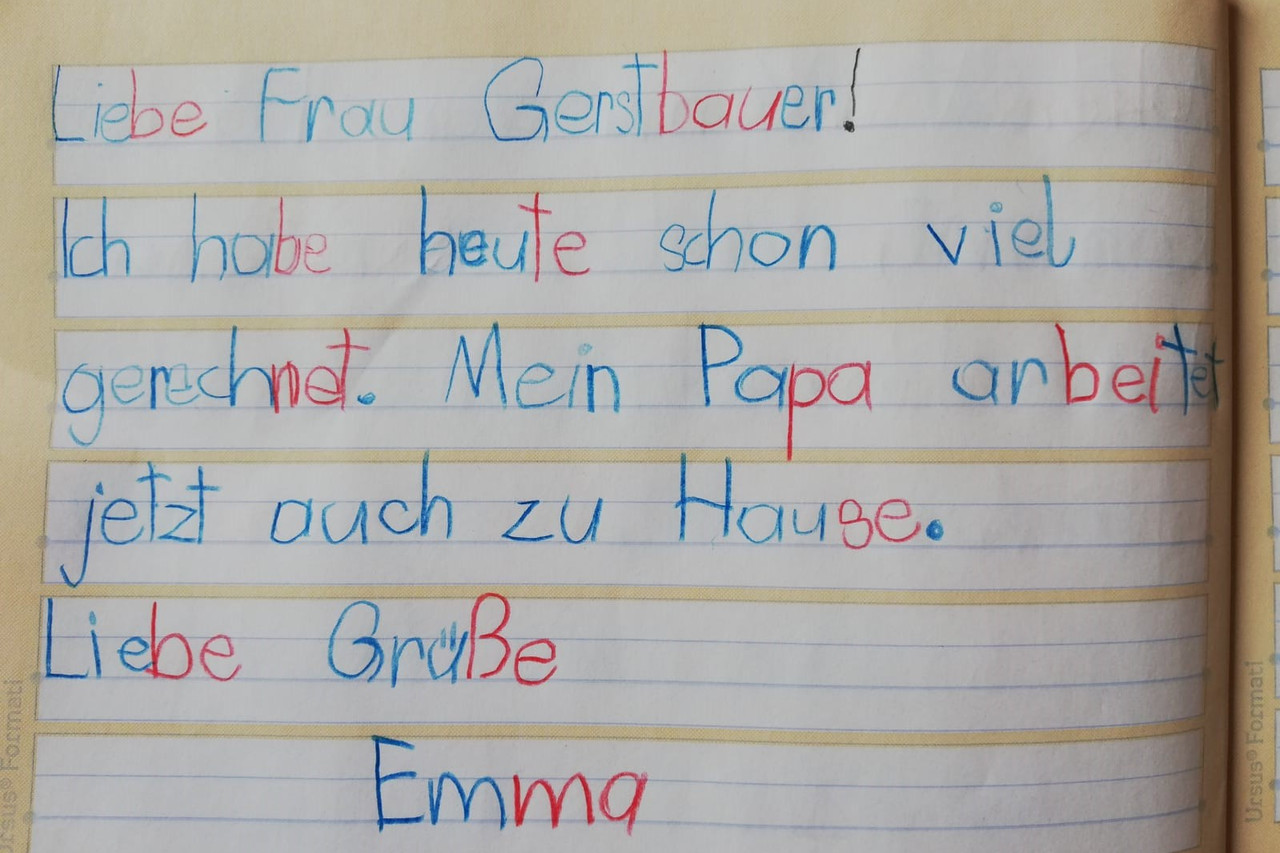 Liebe Frau Gerstbauer!
Ich habe heute schon viel
gerechnet. Mein Papa arbeitet
jetzt auch zu Hause.
Liebe Grüße
Emma
Ursus® Format!
Ursus® Format!